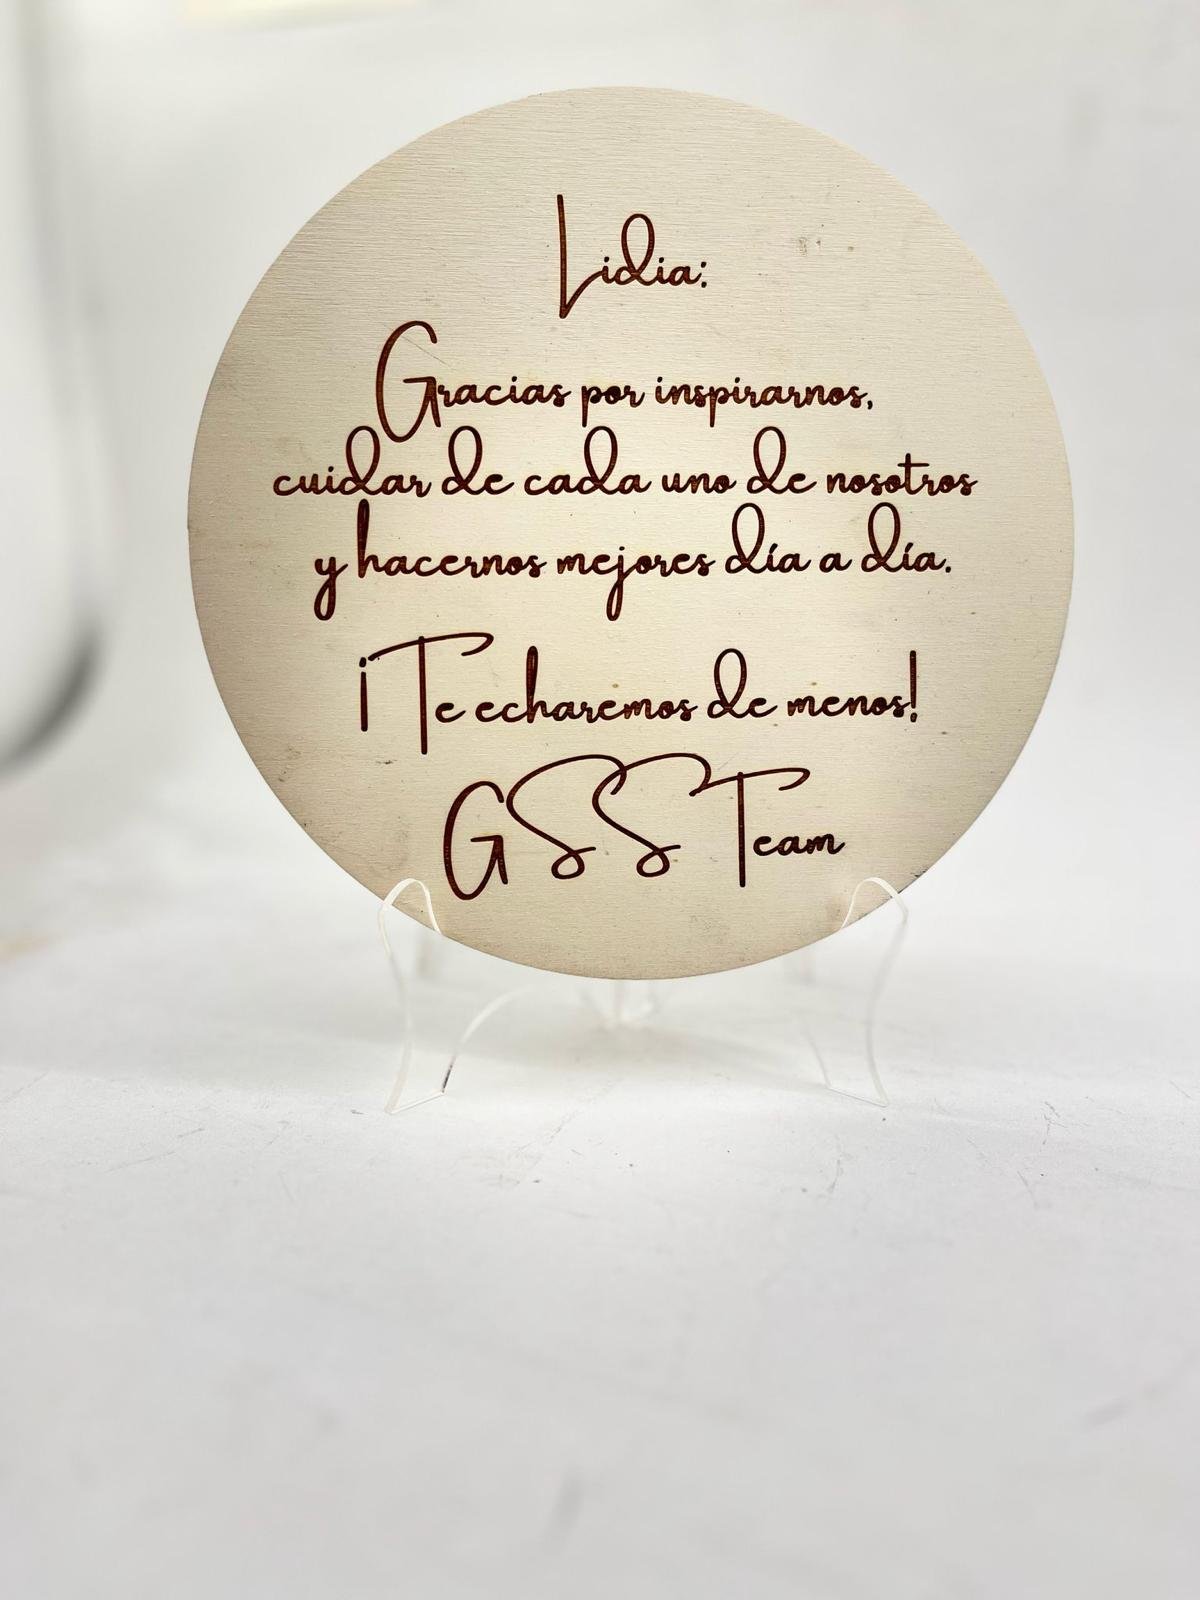 Lidia:
Gracias por inspirarnos,
cuidar de cada uno de nosotros
y hacernos mejores día a día.
¡Te echaremos de menos!
GSS Team